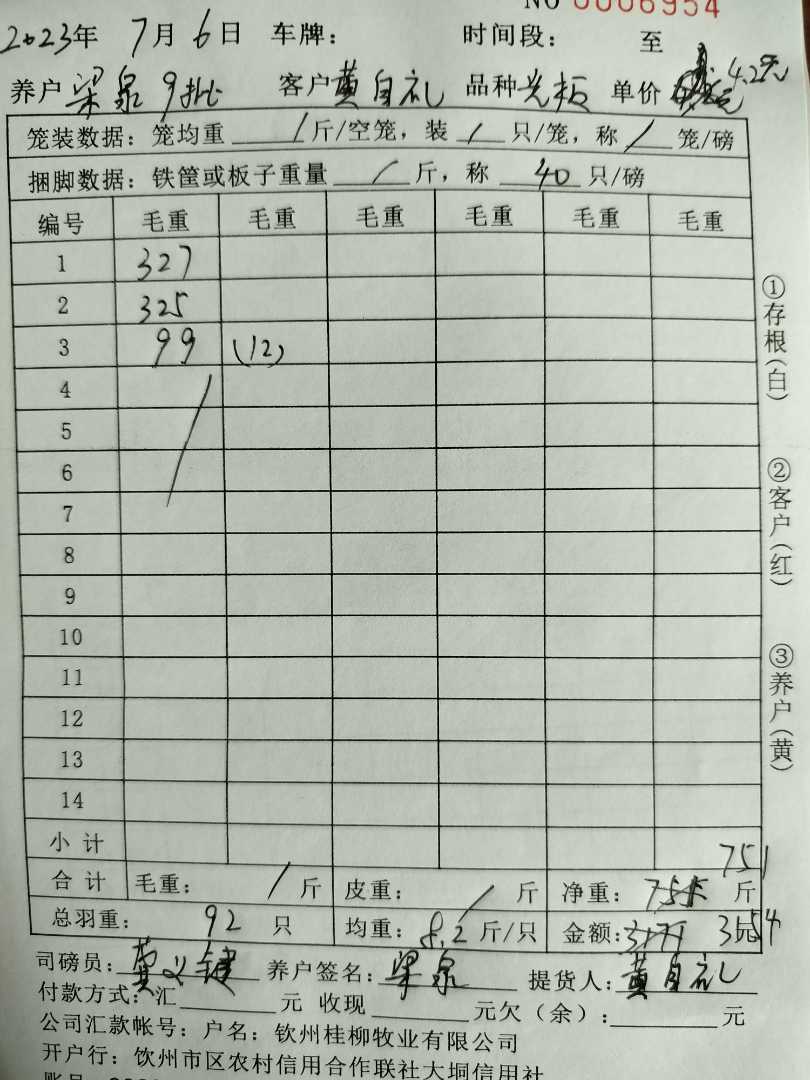 NO 0006954
2023年 7月6日 车牌： 时间段： 至
养户 梁泉 9批 客户 黄自礼 品种 光板 单价 4.2元
笼装数据：笼均重 / 斤/空笼，装 / 只/笼，称 / 笼/磅
捆脚数据：铁筐或板子重量 / 斤，称 40 只/磅
编号 毛重 毛重 毛重 毛重 毛重 毛重
1 327
2 325
3 99 (12)
4
5
6
7
8
9
10
11
12
13
14
小计
751
合计 毛重： / 斤 皮重： / 斤 净重： 斤
总羽重： 92 只 均重：8.2 斤/只 金额： 3154 元
司磅员： 养户签名：梁泉 提货人：黄自礼
付款方式：汇 元 收现 元欠（余）： 元
公司汇款帐号：户名：钦州桂柳牧业有限公司
开户行：钦州市区农村信用合作联社大垌信用社
①存根（白）
②客户（红）
③养户（黄）